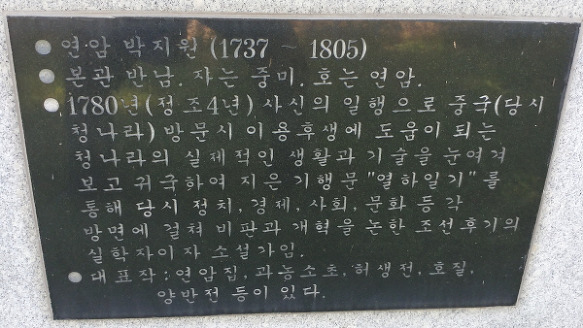 연암 박지원 (1737 ~ 1805)
본관 반남. 자는 중미. 호는 연암.
1780년(정조4년) 사신의 일행으로 중국(당시
청나라) 방문시 이용후생에 도움이 되는
청나라의 실제적인 생활과 기술을 눈여겨
보고 귀국하여 지은 기행문 "열하일기"를
통해 당시 정치, 경제, 사회, 문화 등 각
방면에 걸쳐 비판과 개혁을 논한 조선후기의
실학자이자 소설가임.
대표작 : 연암집, 과농소초, 허생전, 호질,
양반전 등이 있다.